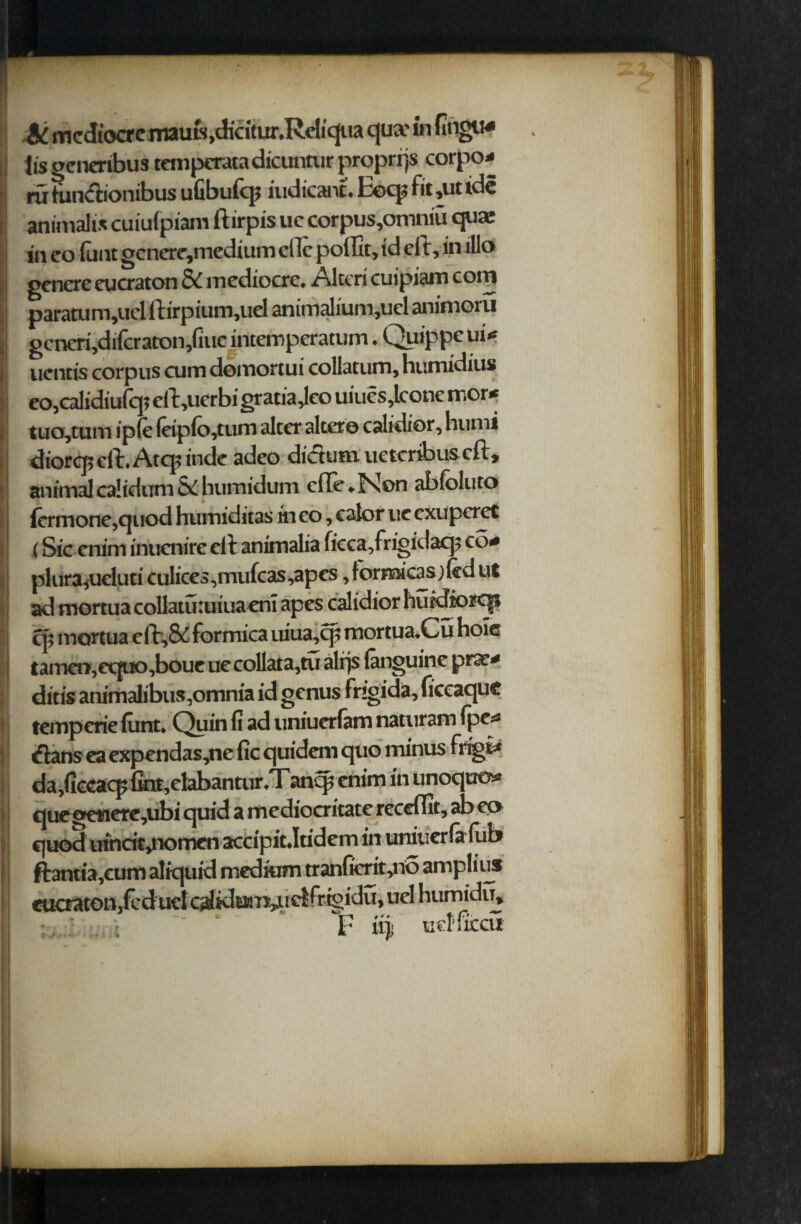 23
& mediocre mauis,dicitur.Reliqua quæ in ſingu⸗
lis generibus temperata dicuntur proprijs corpo⸗
rũ functionibus uſibuſq; iudicant. Eoq; fit,ut idẽ
animalis cuiuſpiam ſtirpis ue corpus,omniũ quæ
in eo ſunt genere,medium eſſe poſſit,id eſt,in illo
genere eucraton & mediocre. Alteri cuipiam com
paratum,uel ſtirpium,uel animalium,uel animorũ
generi,diſcraton,ſiue intemperatum. Quippe ui⸗
uentis corpus cum domortui collatum,humidius
eo,calidiuſq; eſt,uerbi gratia,leo uiuẽs,leone mor⸗
tuo,tum ipſe ſeipſo,tum alter altero calidior,humi
diorq; eſt. Atq; inde adeo dictum ueteribus eſt,
animal calidum & humidum eſſe. Non abſoluto
ſermone,quod humiditas in eo,calor ue exuperet
(Sic enim inuenire eſt animalia ſicca,frigidaq; cõ⸗
plura,ueluti culices,muſcas,apes,formicas) ſed ut
ad mortua collatũ:uiua enĩ apes calidior hũidiorq;
q̃; mortua eſt,& formica uiua,q̃; mortua.Cũ hoĩe
tamen,equo,boue ue collata,tũ alijs ſanguine præ⸗
ditis animalibus,omnia id genus frigida,ſiccaque
temperie ſunt. Quin ſi ad uniuerſam naturam ſpe⸗
ctans ea expendas,ne ſic quidem quo minus frigi⸗
da,ſiccaq; ſint,elabantur.Tanq̃; enim in unoquo⸗
que genere,ubi quid a mediocritate receſſit,ab eo
quod uincit,nomen accipit.Itidem in uniuerſa ſub
ſtantia,cum aliquid medium tranſierit,nõ amplius
eucraton,ſed uel calidum,uel frigidũ,uel humidũ,
F iij uel ſiccũ